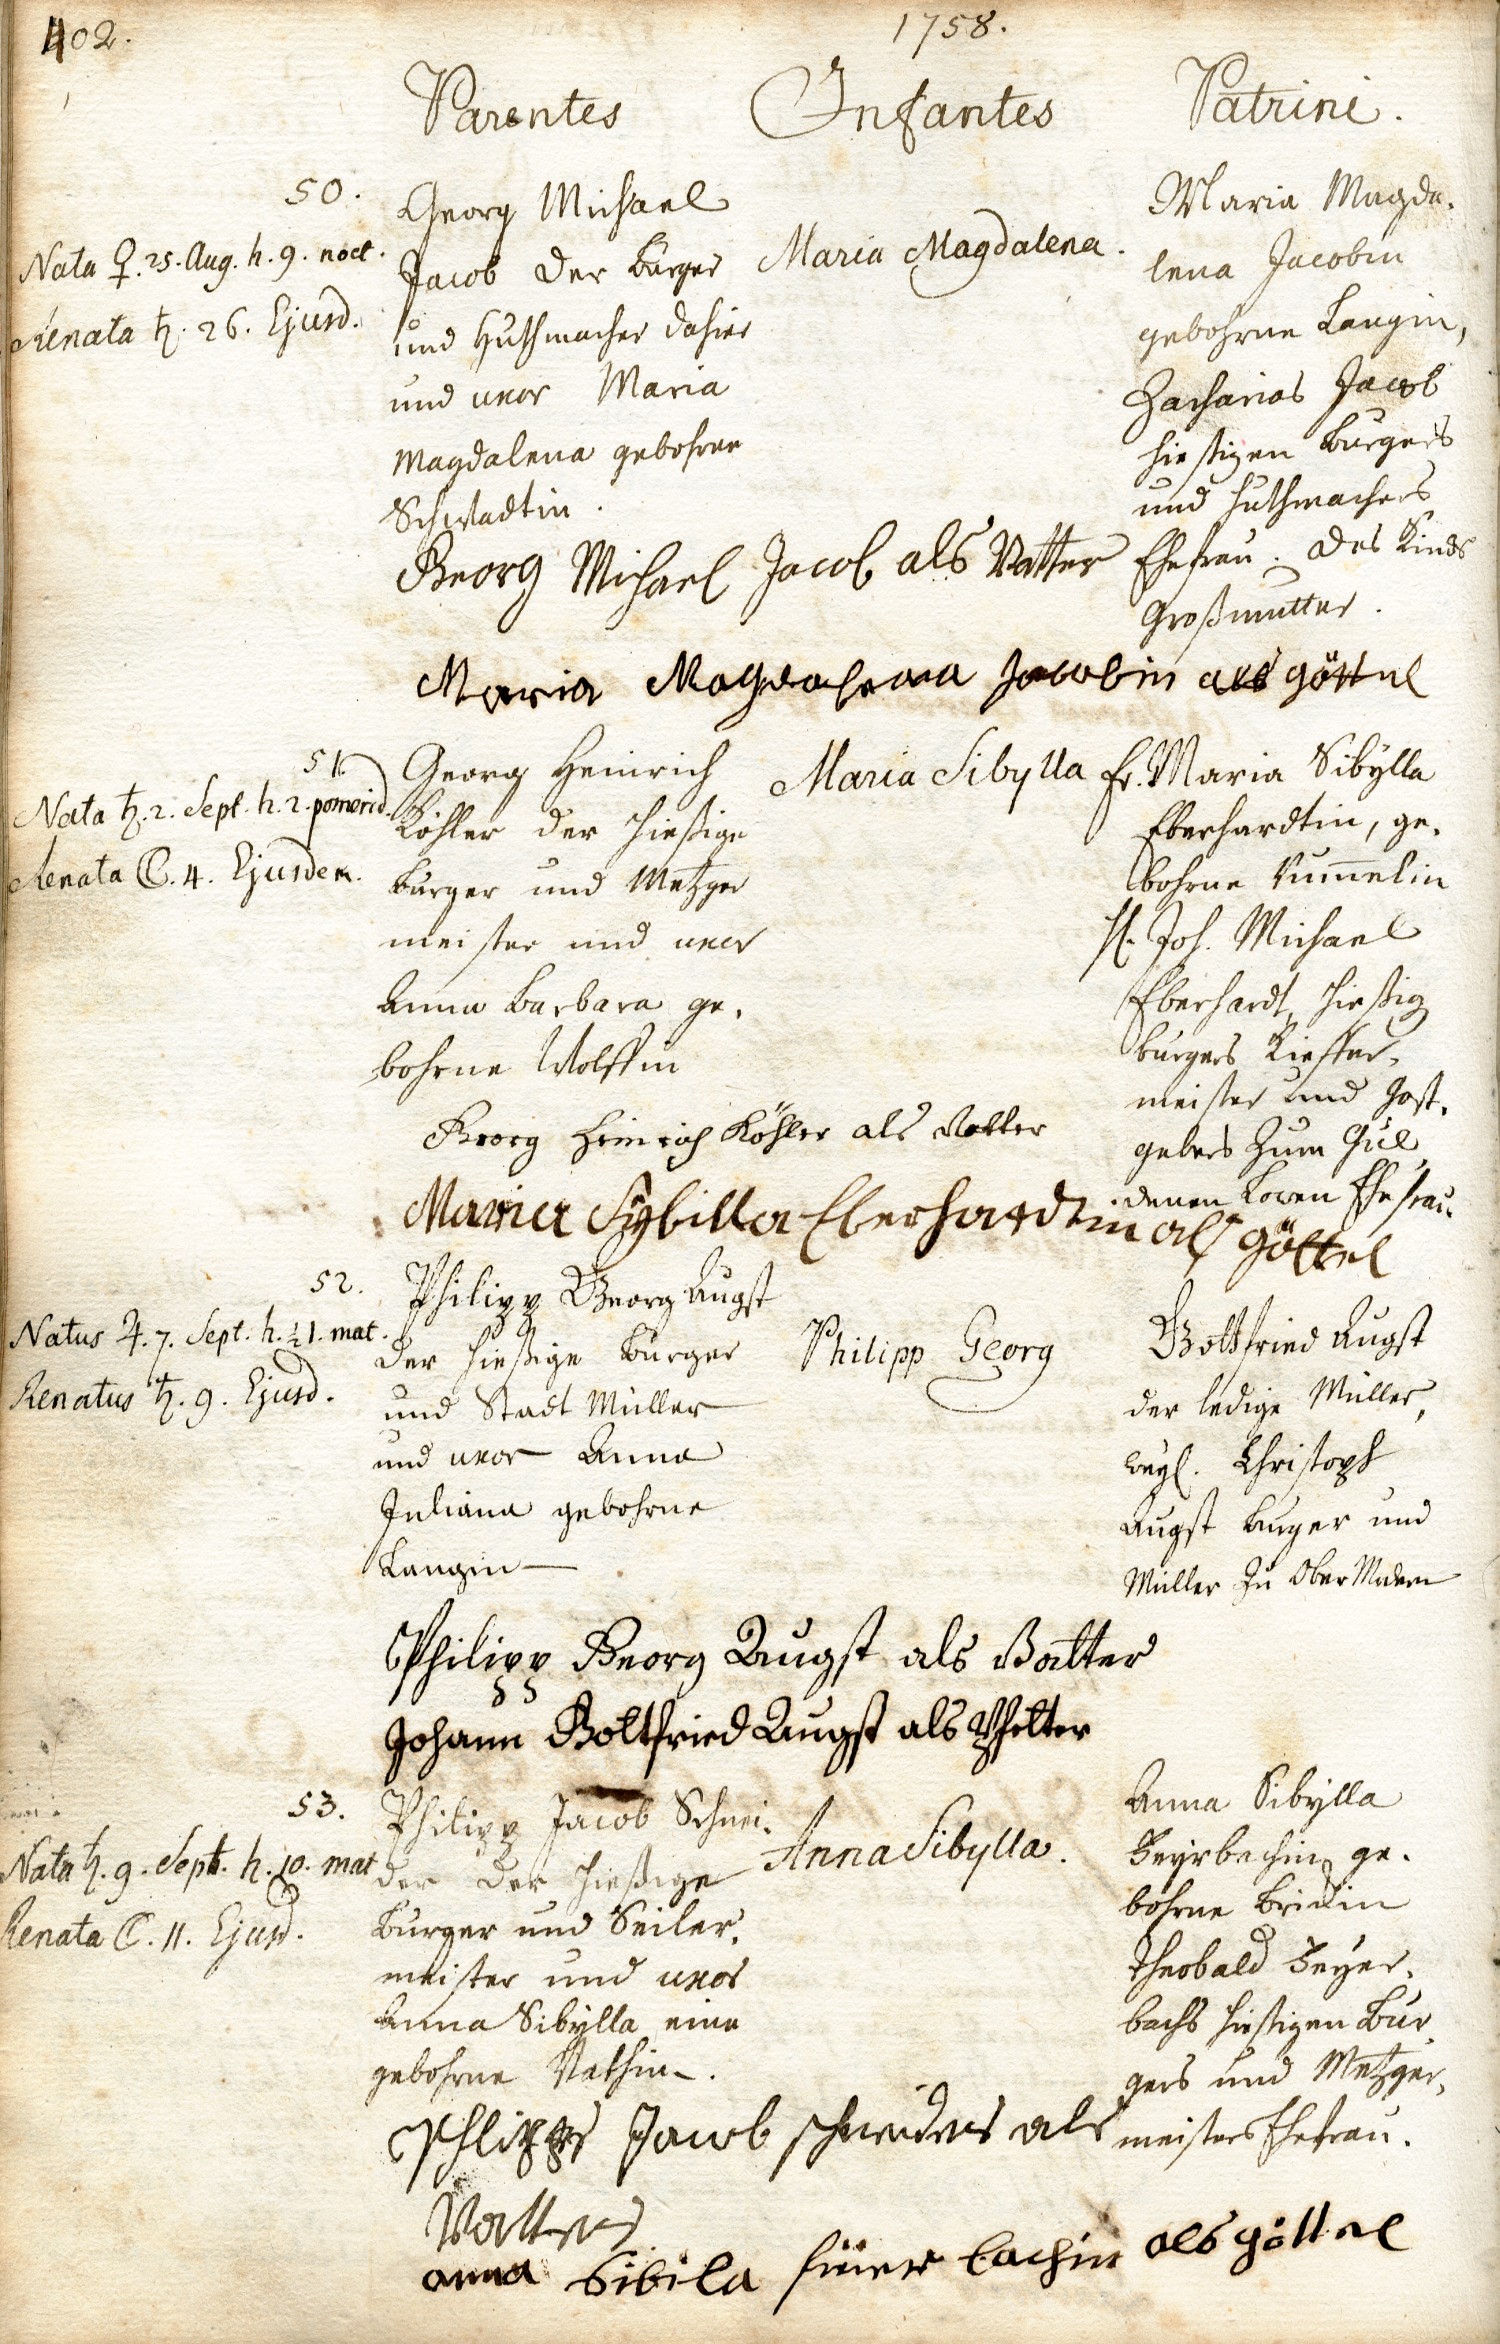 402.
1758.
Parentes Infantes Patrini.
50.
Nata ♀. 25. Aug. h. 9. noct.
Renata ♄. 26. Ejusd.
Georg Michael
Jacob der burger
und Huthmacher dahier
und uxor Maria
Magdalena gebohrne
Schwadtin.
Maria Magdalena.
Maria Magda-
lena Jacobin
gebohrne Langin,
Zacharias Jacob
hiesigen burgers
und huthmachers
Ehefrau. des Kinds
Großmutter.
Georg Michael Jacob als Vatter
Maria Magdalena Jacobin als göttel
51.
Nata ♄. 2. Sept. h. 2. pomerid.
Renata ☾. 4. Ejusdem.
Georg Heinrich
Köhler der hießige
burger und Metzger
meister und uxor
Anna Barbara ge-
bohrne Wolffin
Maria Sibylla
Fr. Maria Sibylla
Eberhardtin, ge-
bohrne Kum̄elin
H. Joh. Michael
Eberhardt, hießig
burgers Kieffer-
meister und Gast-
gebers zum Gül-
denen Lowen Ehefrau.
Georg Heinrich Köhler als Vatter
Maria Sybilla Eberhardtin als Göttel
52.
Natus ♃. 7. Sept. h. ½1. mat.
Renatus ♄. 9. Ejusd.
Philipp Georg Augst
der hießige burger
und Stadt Müller
und uxor Anna
Juliana gebohrne
Langin
Philipp Georg
Gottfried Augst
der ledige Müller,
weyl. Christoph
Augst burger und
Müller zu Ober Modern
Philipp Georg Augst als Vatter
Johann Gottfried Augst als Pfetter
53.
Nata ♄. 9. Sept. h. 10. mat
Renata ☾. 11. Ejusd.
Philipp Jacob Schnei-
der der hießige
Burger und Seiler-
meister und uxor
Anna Sibylla eine
gebohrne Rathin.
Anna Sibylla.
Anna Sibylla
Feyrbachin ge-
bohrne
Theobald Feyer-
bachs hießigen Bur-
gers und Metzger-
meisters Ehefrau.
Phlipps Jacob schneiders als
Vatters
anna Sibila feier bachin als göttel